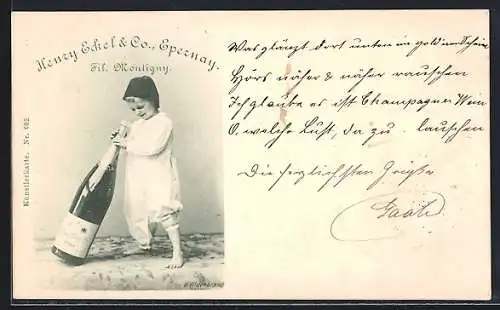 Henry Eckel & Co., Epernay.
Fil. Montigny.
Künstlerkarte. No. 602
Was glänzt dort unten im goldnen Schein
Hörs näher & näher rauschen
Ich glaube es ist Champagner Wein
O, welche Lust, da zu lauschen
Die herzlichsten Grüße